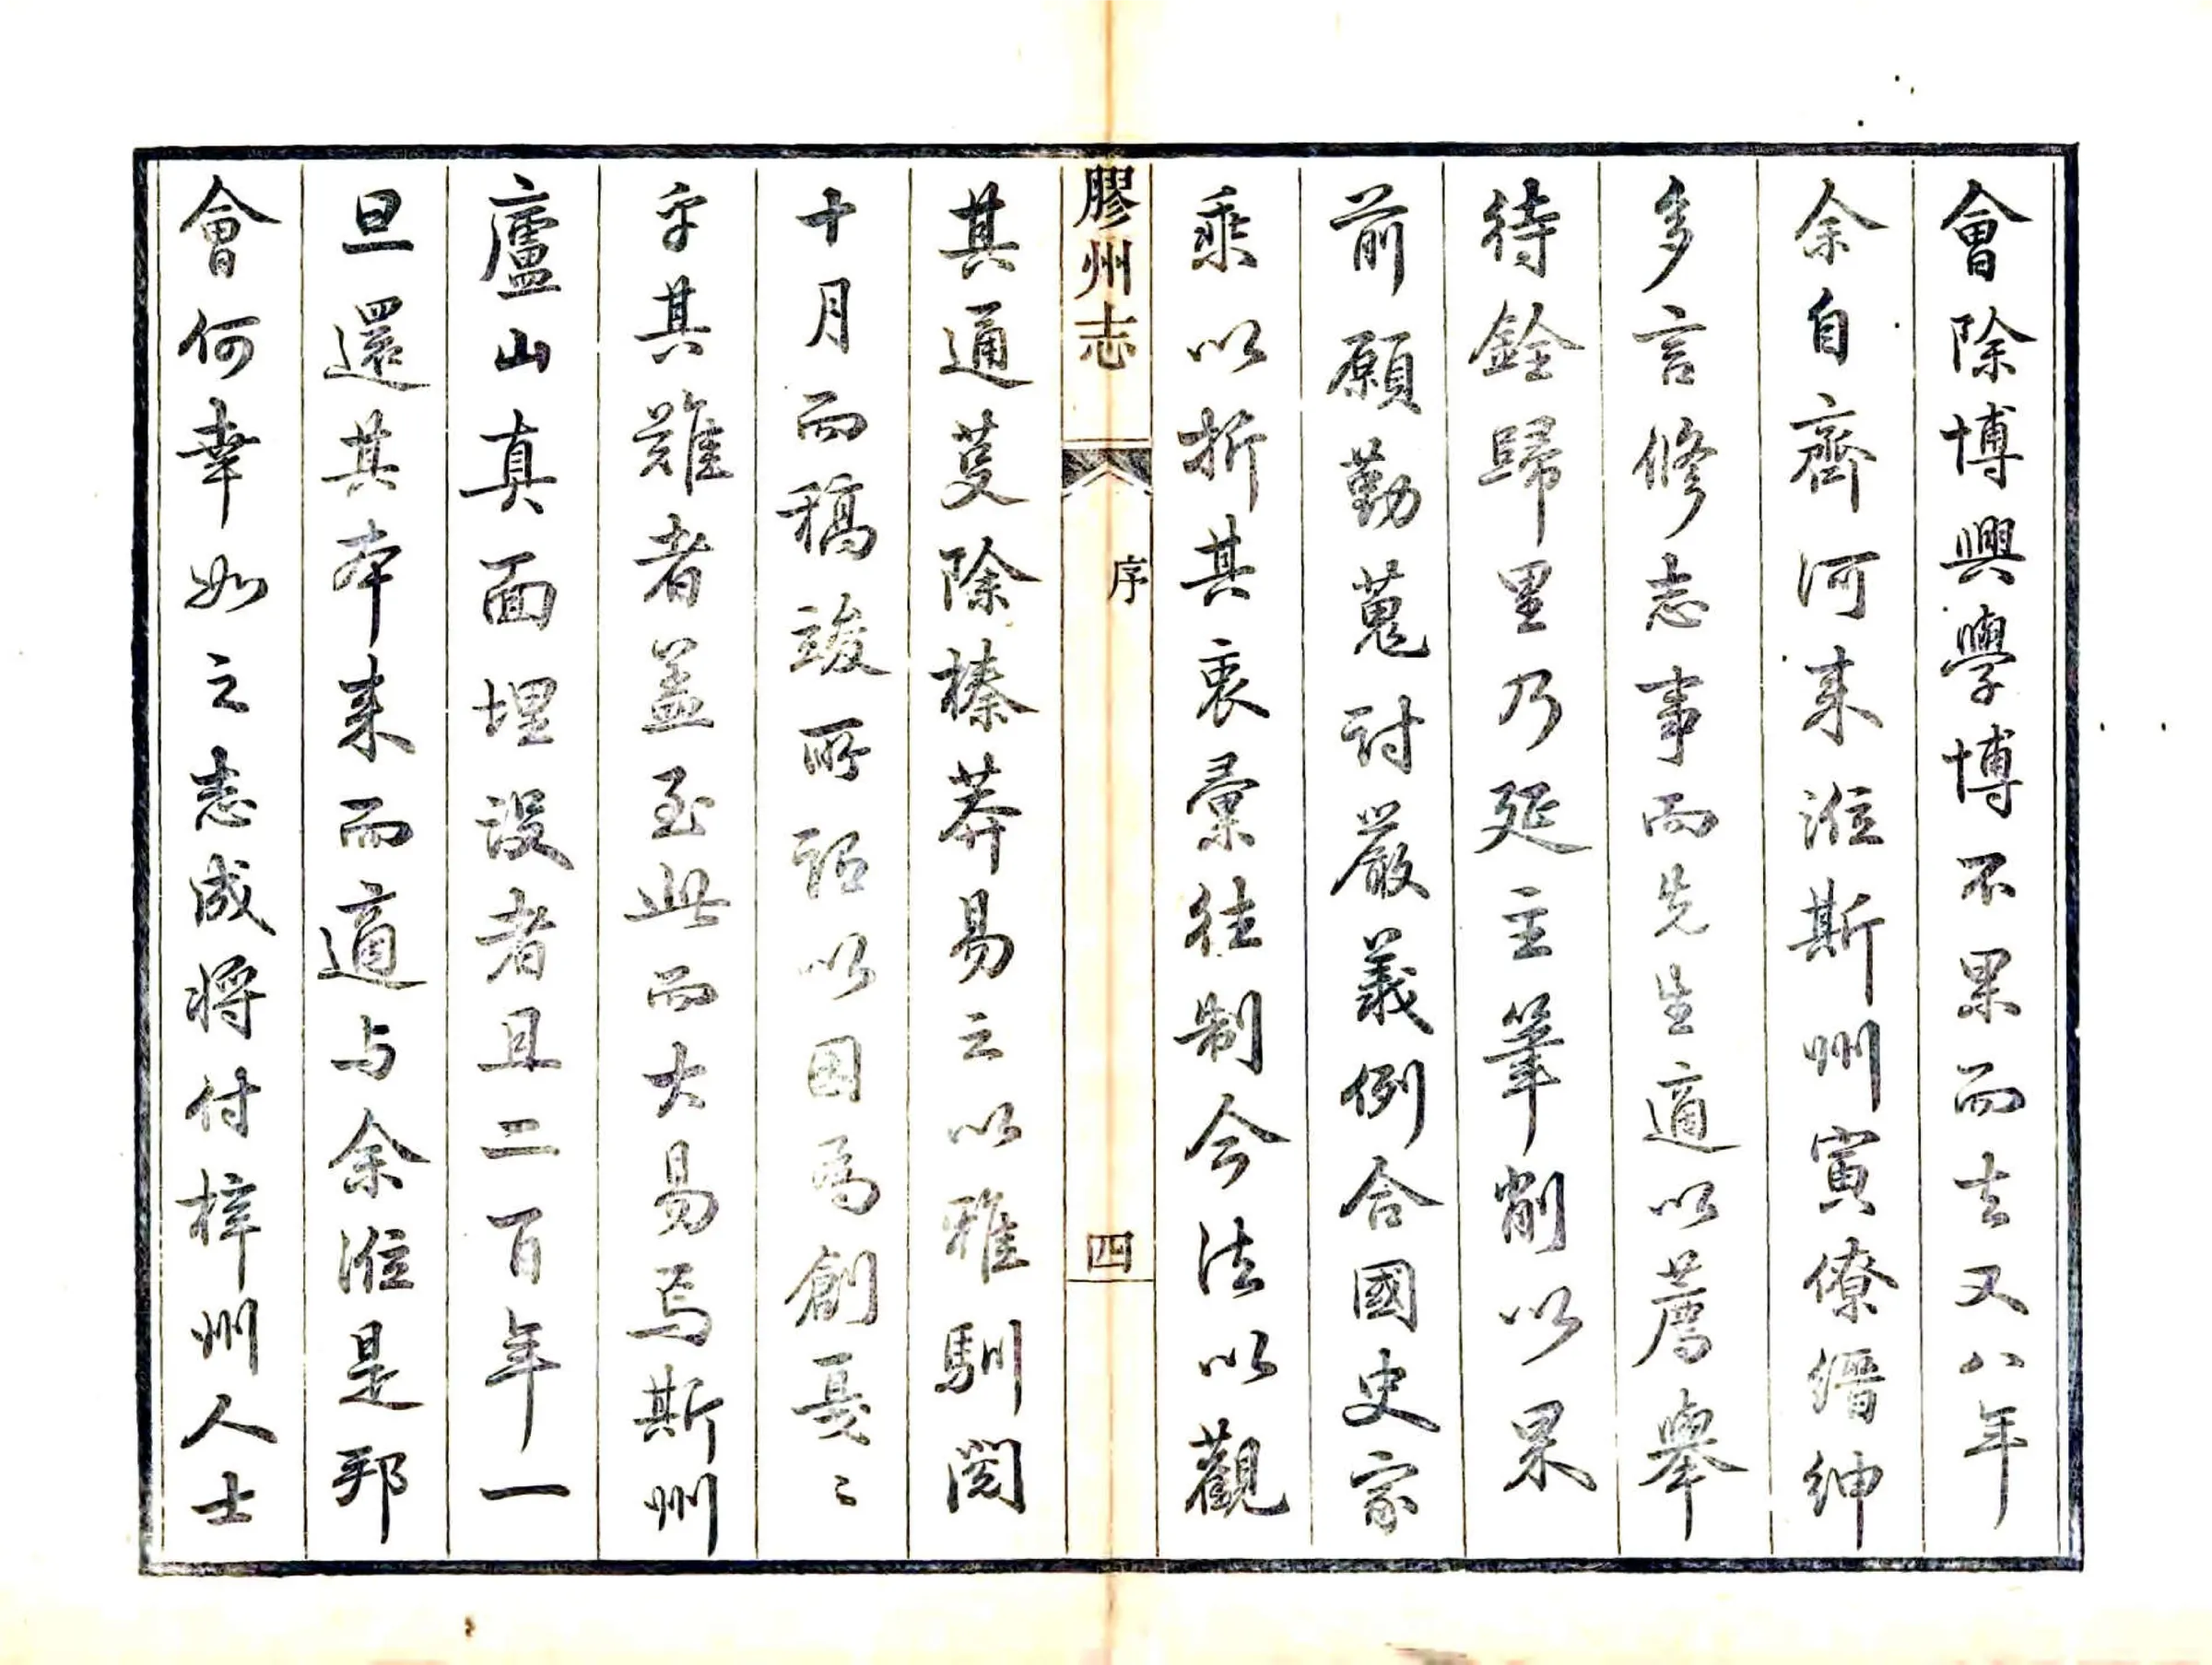 會除博興學博不果而去又八年
余自齊河來涖斯州寅僚縉紳
多言修志事而先生適以薦舉
待銓歸里乃延主筆削以果
前願勤蒐討嚴義例合國史家
乘以折其衷彙往制今法以觀
膠州志
序
四
其通芟除榛莽易之以雅馴閱
十月而稿竣所謂以因為創戛〻
乎其難者蓋至此而大易焉斯州
廬山真面埋沒者且二百年一
旦還其本來而適与余涖是邦
會何幸如之志成將付梓州人士